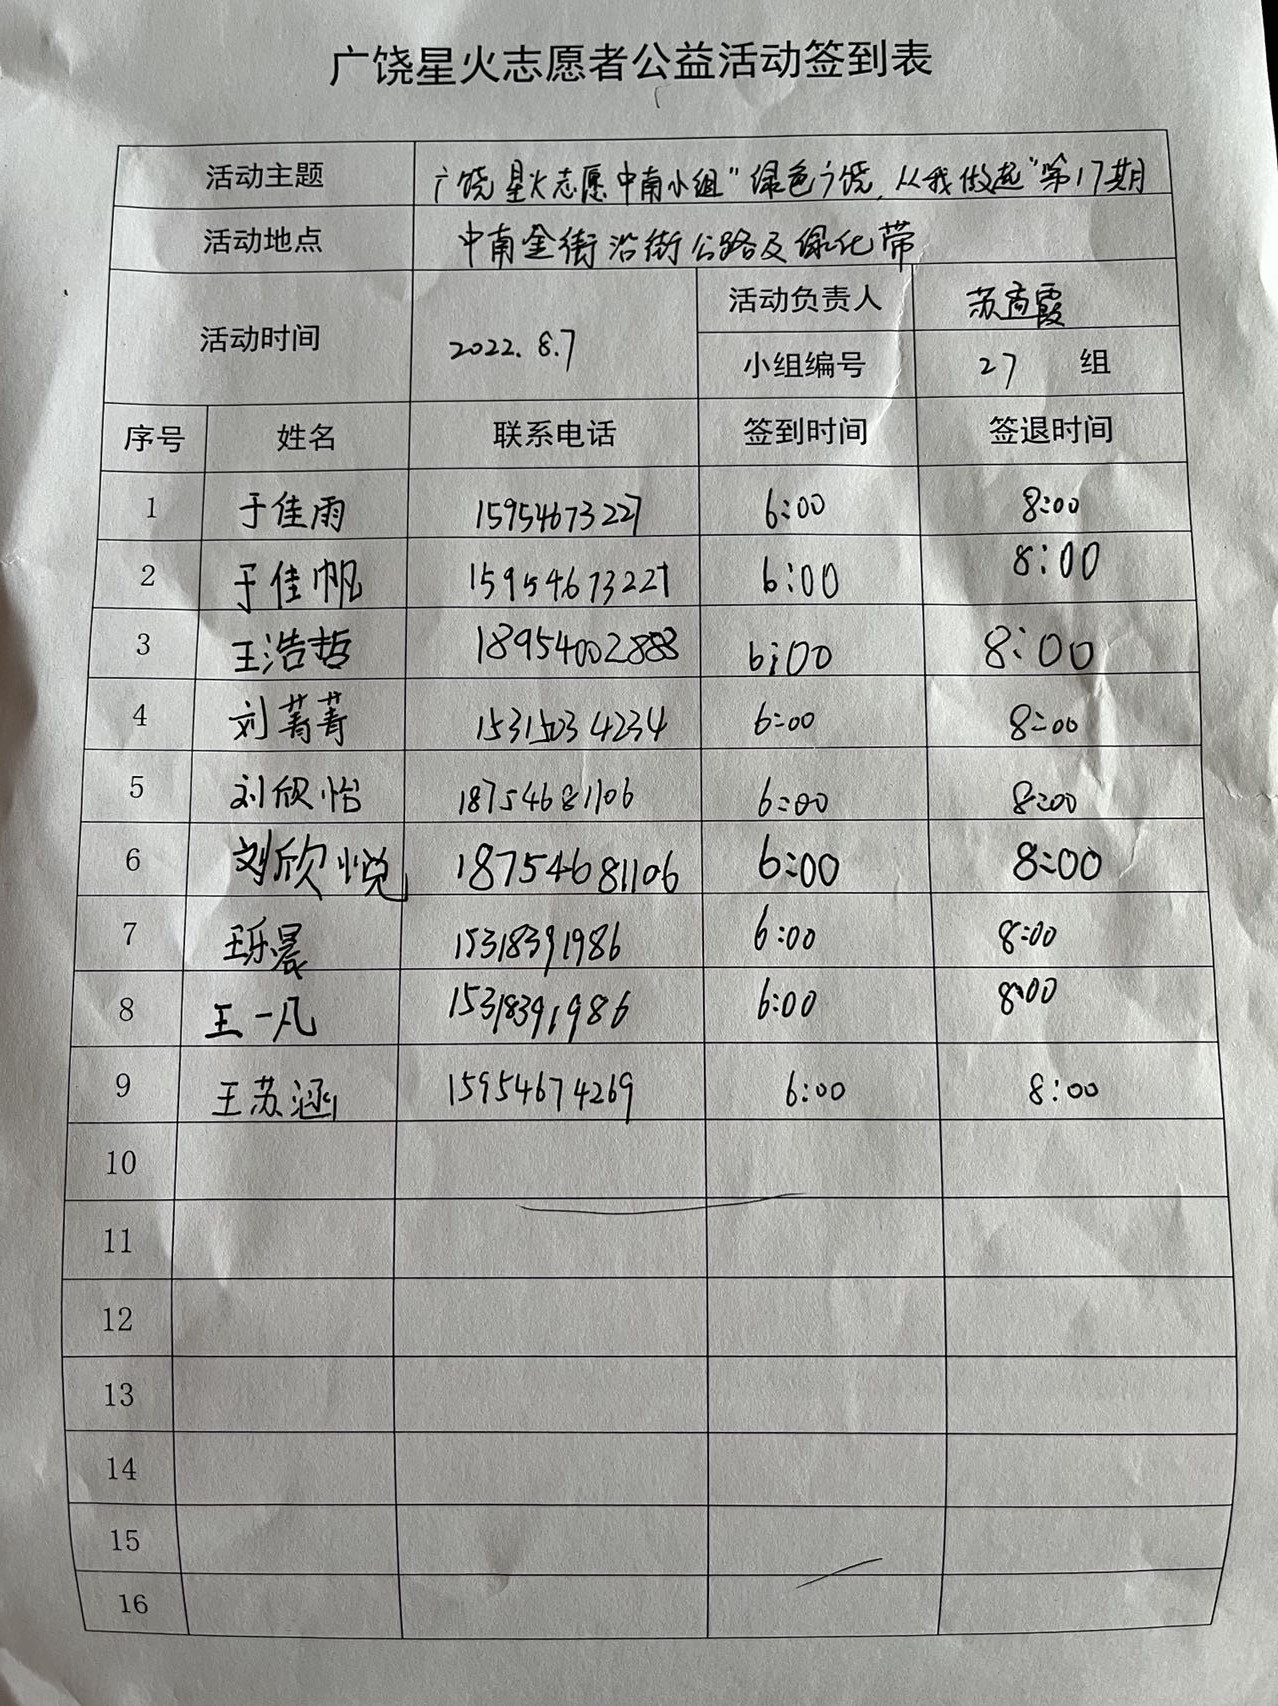 广饶星火志愿者公益活动签到表
活动主题 广饶星火志愿中南小组"绿色广饶,从我做起"第17期
活动地点 中南金街沿街公路及绿化带
活动时间 2022.8.7 活动负责人 苏商霞
小组编号 27 组
序号 姓名 联系电话 签到时间 签退时间
1 于佳雨 15954673227 6:00 8:00
2 于佳帆 15954673227 6:00 8:00
3 王浩哲 18954002888 6:00 8:00
4 刘菁菁 15315034234 6:00 8:00
5 刘欣怡 18754681106 6:00 8:00
6 刘欣悦 18754681106 6:00 8:00
7 王乐晨 15318391986 6:00 8:00
8 王一凡 15318391986 6:00 8:00
9 王苏涵 15954674269 6:00 8:00
10
11
12
13
14
15
16